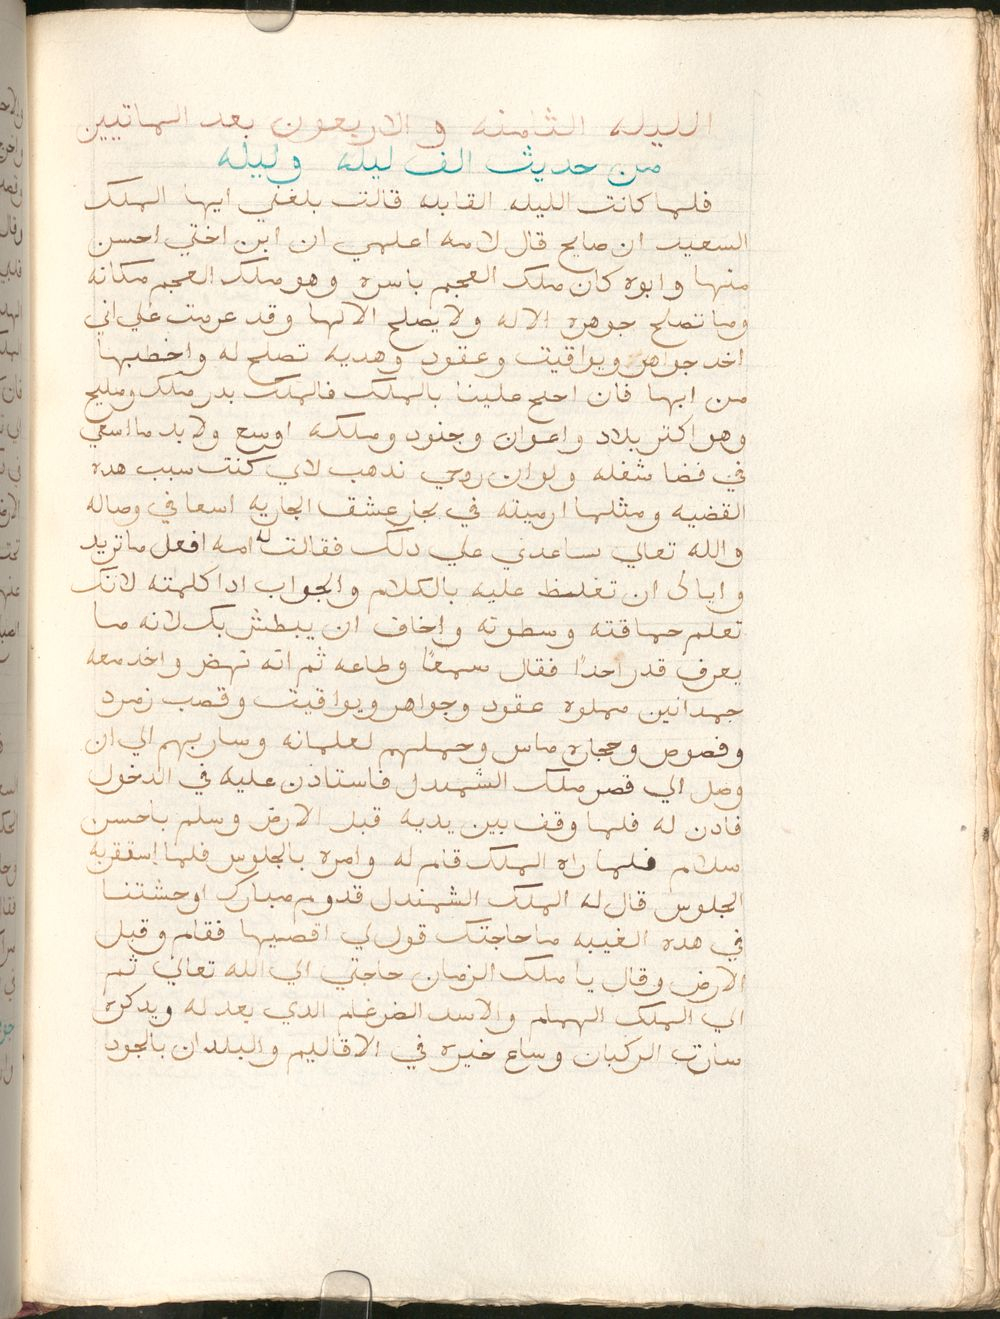 الليله الثامنه و الاربعون بعد الماتيين
من حديث الف ليله وليله
فلما كانت الليله القابله قالت بلغني ايها الملك
السعيد ان صايح قال لامه اعلمي ان ابن اختي احسن
منها وابوه كان ملك العجم باسره وهو ملك العجم مكانه
وما تصلح جوهره الا له ولا يصلح الا لها وقد عزمت علي اني
اخد جواهر ويواقيت وعقود وهديه تصلح له واخطبها
من ابها فان احتج علينا بالملك فالملك بدر ملك ومليح
وهو اكتر بلاد واعوان وجنود وملكه اوسع ولا بد ما اسعي
في قضا شغله ولو ان روحي تدهب لاني كنت سبب هده
القضيه ومثلما ارميته في بحار عشق الجاريه اسعا في وصاله
والله تعالي ساعدني علي دلك فقالت له امه افعل ما تريد
واياك ان تغلظ عليه بالكلام والجواب ادا كلمته لانك
تعلم حماقته وسطوته واخاف ان يبطش بك لانه ما
يعرف قدر احدًا فقال سمعًا وطاعه ثم انه نهض واخد معه
جمدانين مملوه عقود وجواهر ويواقيت وقصب زمرد
وفصوص وحجاره ماس وحملهم لغلمانه وسار بهم الي ان
وصل الي قصر ملك الشمندل فاستاذن عليه في الدخول
فادن له فلما وقف بين يديه قبل الارض وسلم باحسن
سلام فلما راه الملك قام له وامره بالجلوس فلما استقر به
الجلوس قال له الملك الشمندل قدوم مبارك اوحشتنا
في هده الغيبه ما حاجتك قول لي اقضيها فقام وقبل
الارض وقال يا ملك الزمان حاجتي الي الله تعالي ثم
الي الملك الهمام والاسد الضرغام الدي بعد له ويدكره
سارت الركبان وساع خبره في الاقاليم والبلدان بالجود